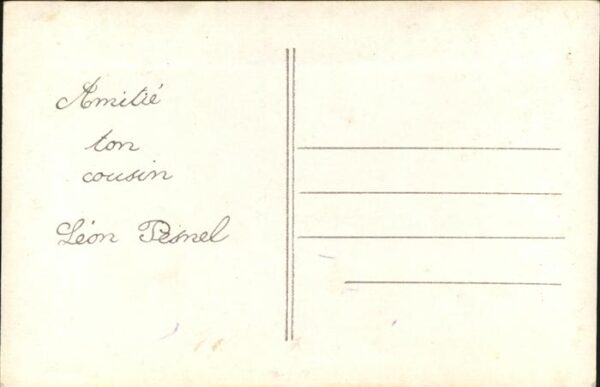 Amitié
ton
cousin
Léon Pesnel